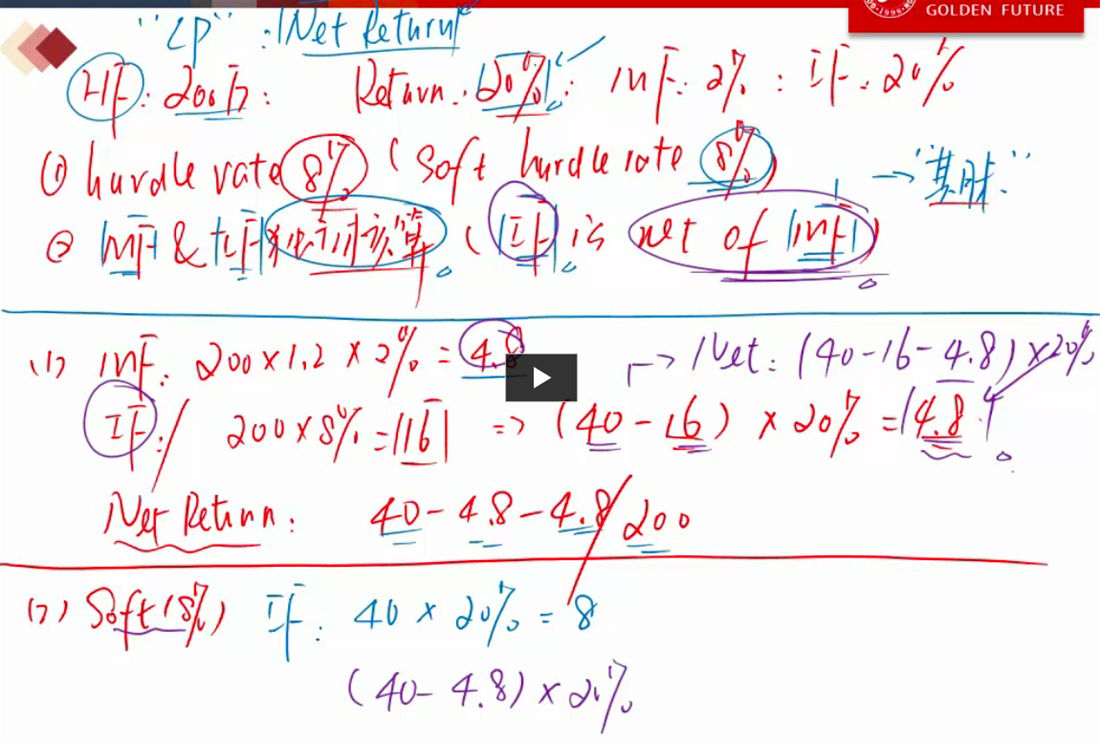 GOLDEN FUTURE
"LP" : Net Return
HF: 200万: Return: 20%: mF: 2% : IF: 20%
① hurdle rate 8% (Soft hurdle rate 8%) → "其时"
② mF & IF 独立计算。 (IF is net of mF)
(1) mF: 200 × 1.2 × 2% = 4.8 → Net: (40-16-4.8) × 20%
IF: 200 × 8% = 16 => (40 - 16) × 20% = 4.8
Net Return: 40 - 4.8 - 4.8 / 200
(2) Soft (8%) IF: 40 × 20% = 8
(40 - 4.8) × 20%